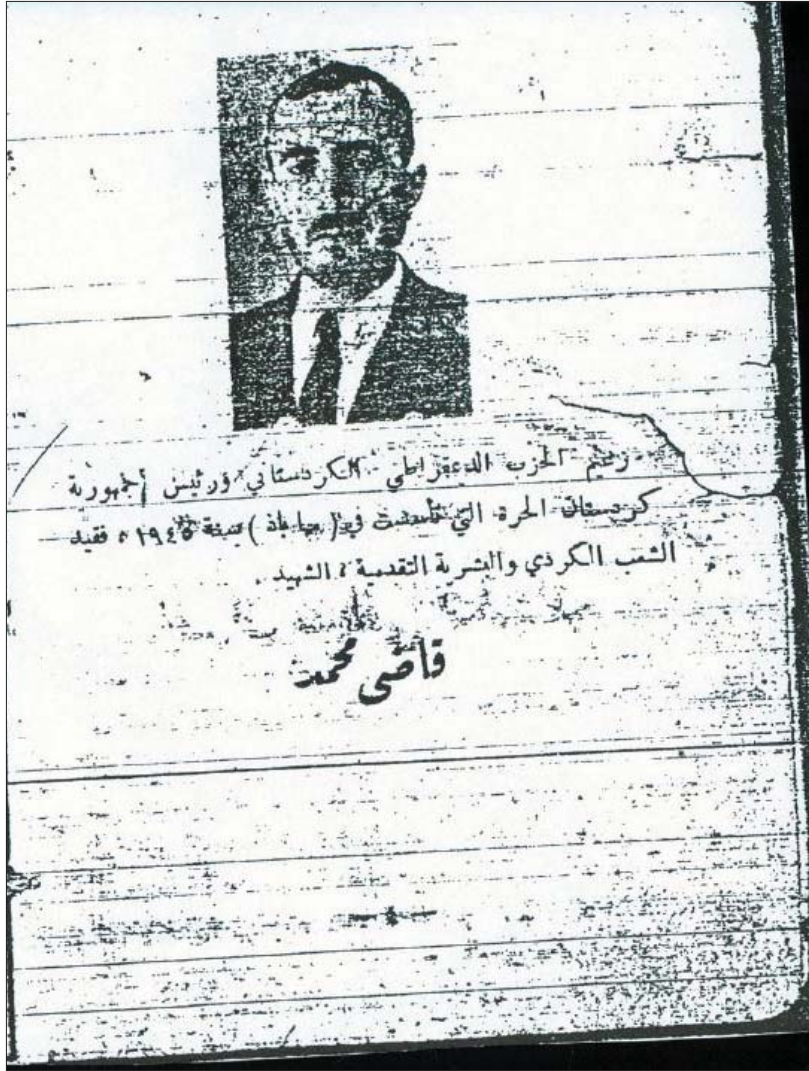 زعيم الحزب الديمقراطي الكردستاني ورئيس جمهورية
كردستان الحرة التي تأسست في (مهاباد) سنة ١٩٤٥ ، فقيد
الشعب الكردي والبشرية التقدمية ، الشهيد .
قاضي محمد